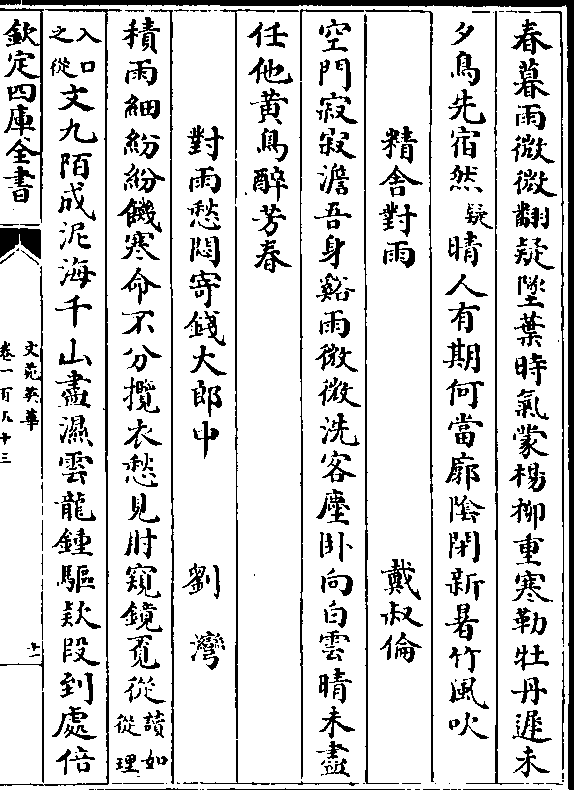 春暮雨微微翻疑墜葉時氣蒙楊柳重寒勒牡丹遲未
夕鳥先宿然疑晴人有期何當廓陰閉新暑竹風吹
精舍對雨　戴叔倫
空門寂寂澹吾身谿雨微微洗客塵卧向白雲晴未盡
任他黄鳥醉芳春
對雨愁悶寄錢大郎中　劉灣
積雨細紛紛饑寒命不分攬衣愁見肘窺鏡覓從讀如從理
入口之從文九陌成泥海千山盡濕雲龍鍾驅欵段到處倍
欽定四庫全書
文苑英華
卷一百八十三
十一